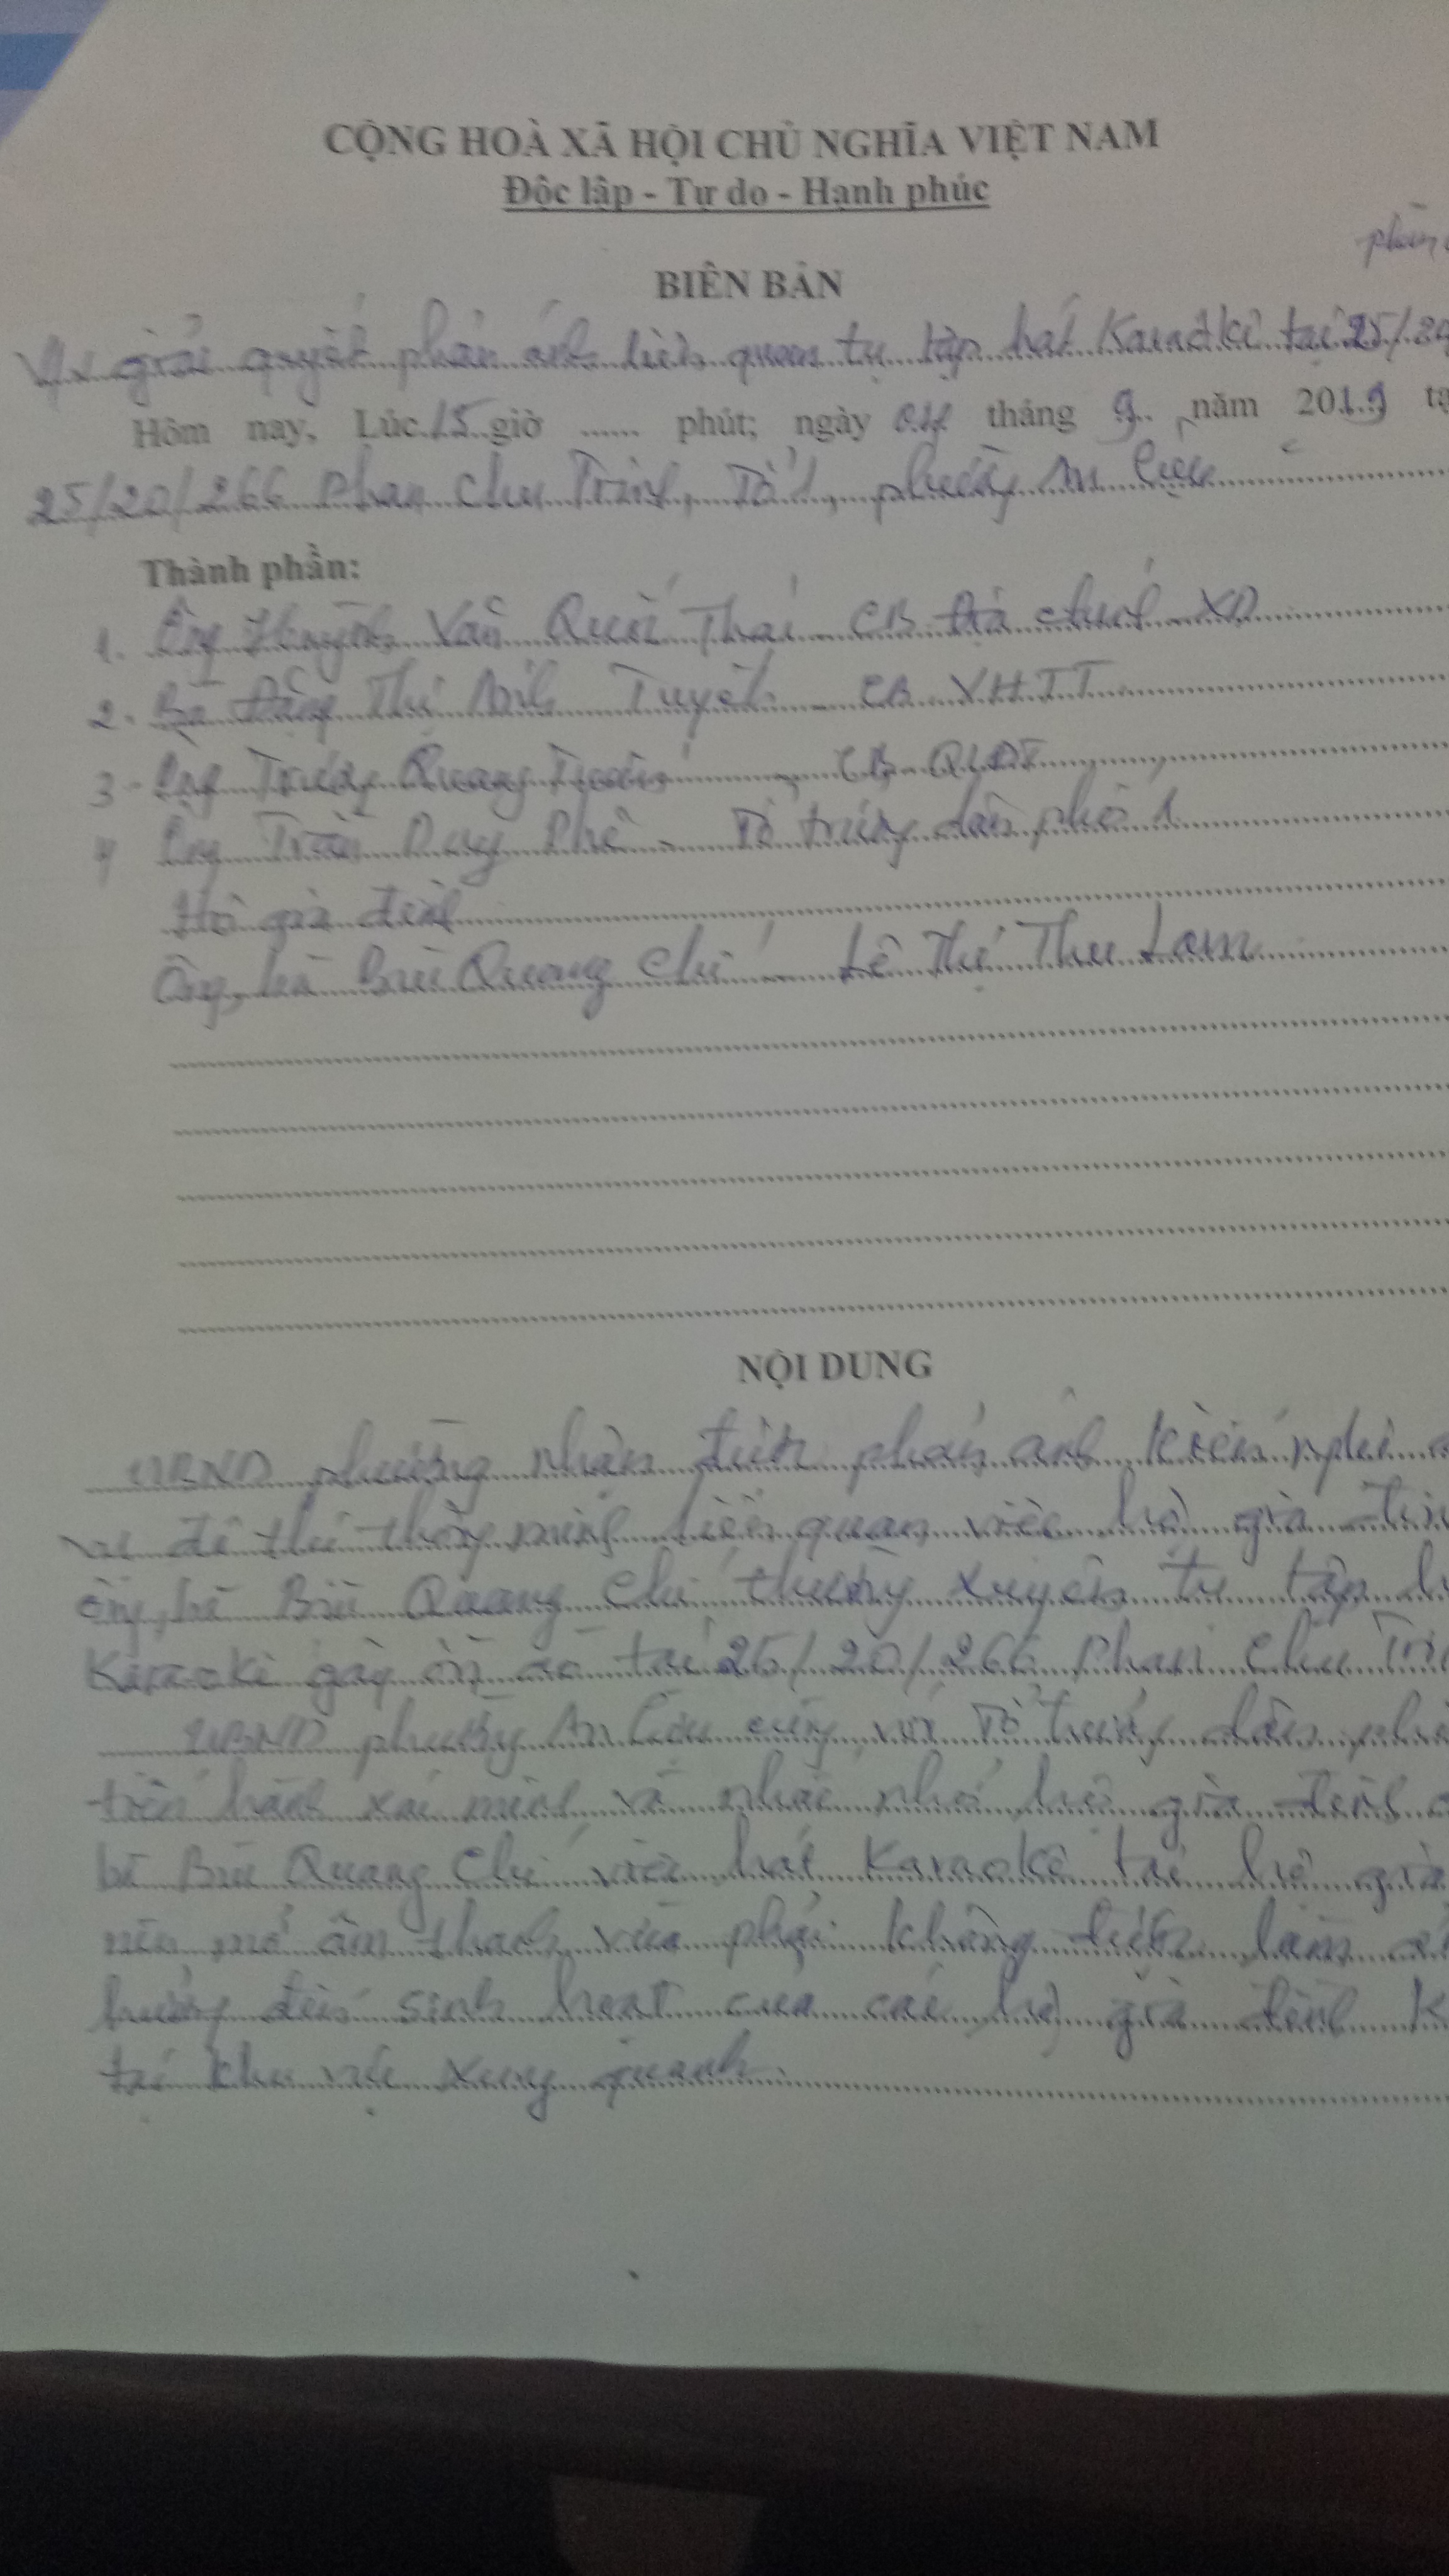 CỘNG HOÀ XÃ HỘI CHỦ NGHĨA VIỆT NAM
Độc lập - Tự do - Hạnh phúc
BIÊN BẢN
V/v giải quyết phản ánh liên quan tụ tập hát Karaokê tại 25/20
Hôm nay, Lúc 15 giờ ...... phút; ngày 04 tháng 9 năm 2019 tạ
25/20/266 Phan Chu Trinh, Tổ 1, phường An Cựu
Thành phần:
1. Ông Huỳnh Văn Quốc Thái - CB địa chính XD
2. Bà Đặng Thị Ánh Tuyết - CB VHTT
3 - Ông Trương Quang - CB QLĐT
4 Ông Trần Duy Phê - Tổ trưởng dân phố 1
Hộ gia đình
Ông, bà Bùi Quang Chí - Lê Thị Thu Lam
NỘI DUNG
UBND phường nhận được phản ánh kiến nghị
đô thị thông minh liên quan việc hộ gia
ông, bà Bùi Quang Chí thường xuyên tụ tập
Karaokê gây ồn ào tại 25/20/266 Phan Chu
UBND phường An Cựu cùng với Tổ trưởng dân
tiến hành xác minh và nhắc nhở hộ gia đình
bà Bùi Quang Chí việc hát Karaokê tại hộ gia
nên mở âm thanh vừa phải không được làm
hưởng đến sinh hoạt của các hộ gia đình
tại khu vực xung quanh.